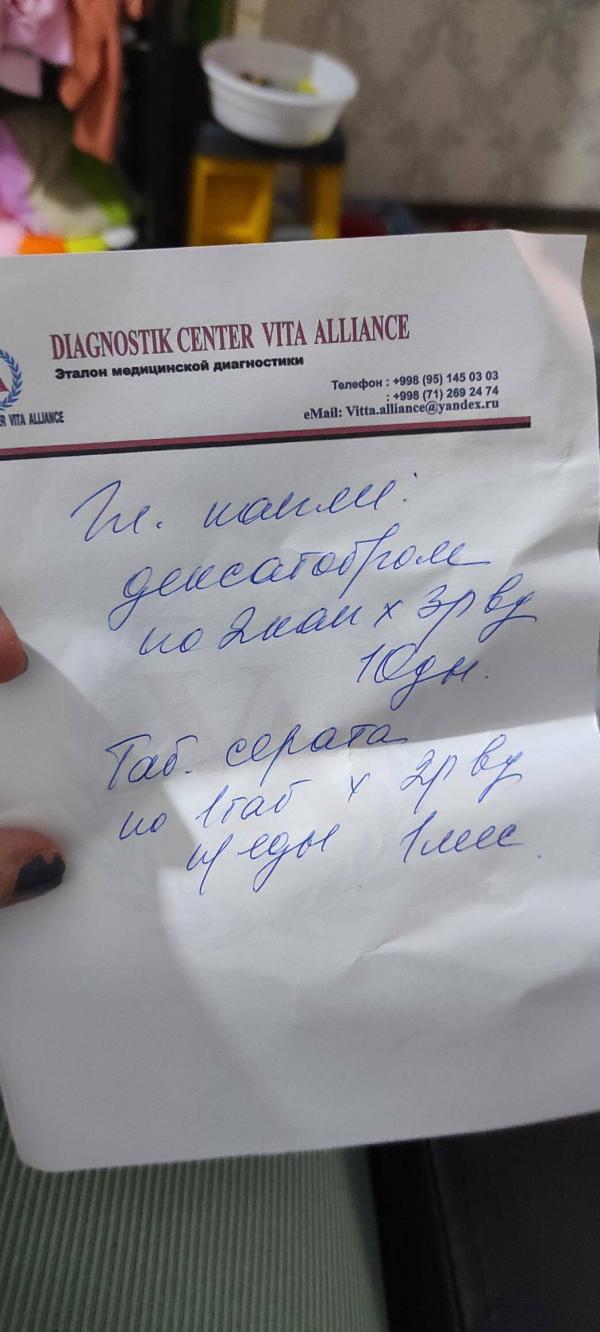 DIAGNOSTIK CENTER VITA ALLIANCE
Эталон медицинской диагностики
Телефон : +998 (95) 145 03 03
: +998 (71) 269 24 74
eMail: Vitta.alliance@yandex.ru
ER VITA ALLIANCE
Гл. капли:
дексатобром
по 2кап х 3р вд
10дн.
Таб. серата
по 1таб х 2р вд
еды 1мес.